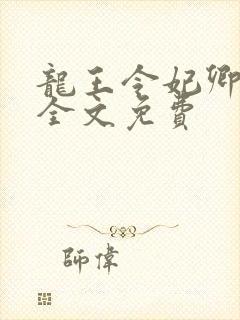 龍王令妃卿
全文免費
師偉